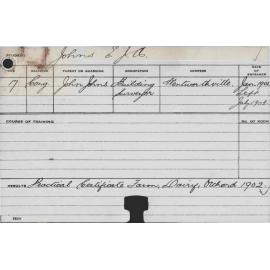 STUDENT Johns E J A.
AGE RELIGION PARENT OR GUARDIAN OCCUPATION ADDRESS DATE OF ENTRANCE
7 Cong John Johns Building Wentworthville. Jan 1901
Surveyor Sept
July 1902
COURSE OF TRAINING NO. OF ROOM
RESULTS Practical Certificate Farm, Dairy, Orchard 1902.